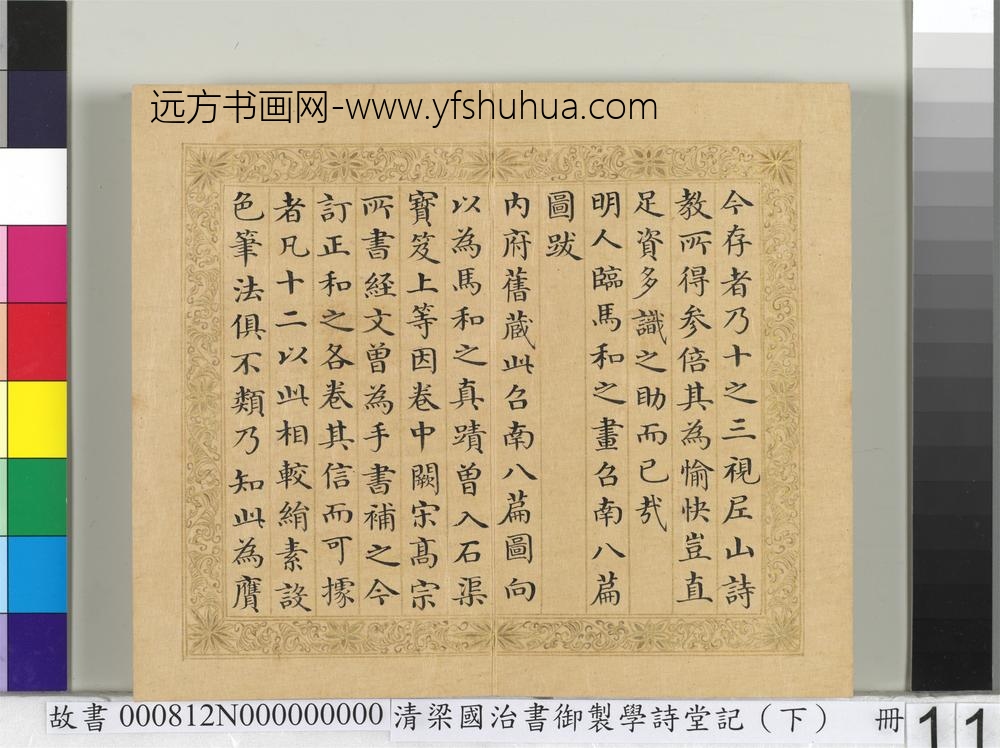 远方书画网-www.yfshuhua.com
今存者乃十之三視㞐山詩
教所得参倍其為愉快豈直
足資多識之助而已㢤
明人臨馬和之畫召南八篇
圖跋
內府舊蔵此召南八篇圖向
以為馬和之真蹟曾入石渠
寶笈上等因卷中闕宋髙宗
所書経文曾為手書補之今
訂正和之各卷其信而可據
者凡十二以此相較絹素設
色筆法俱不類乃知此為贋
故書 000812N000000000 清梁國治書御製學詩堂記（下） 冊 11